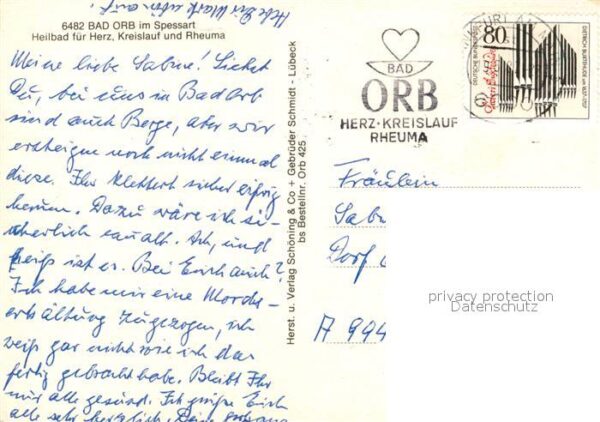 6482 BAD ORB im Spessart
Heilbad für Herz, Kreislauf und Rheuma
Meine liebe Sabine! Siehst
Du, bei uns in Bad Orb
sind auch Berge, aber wir
ersteigen noch nicht einmal
diese. Ihr klettert sicher eifrig
herum. Dazu wäre ich si-
cherlich zu alt. Ach, und
heiß ist es. Bei Euch auch?
Ich habe mir eine Mords-
erkältung zugezogen, ich
weiß gar nicht wie ich das
fertig gebracht habe. Bleibt Ihr
nur alle gesund. Ich grüße Euch
alle sehr herzlich. Deine
Herst. u. Verlag Schöning & Co + Gebrüder Schmidt - Lübeck
bs Bestellnr. Orb 425
BAD
ORB
HERZ·KREISLAUF
RHEUMA
80
DEUTSCHE BUNDESPOST
DIETRICH BUXTEHUDE
Fräulein
Sab
Dorf
A 994
privacy protection
Datenschutz